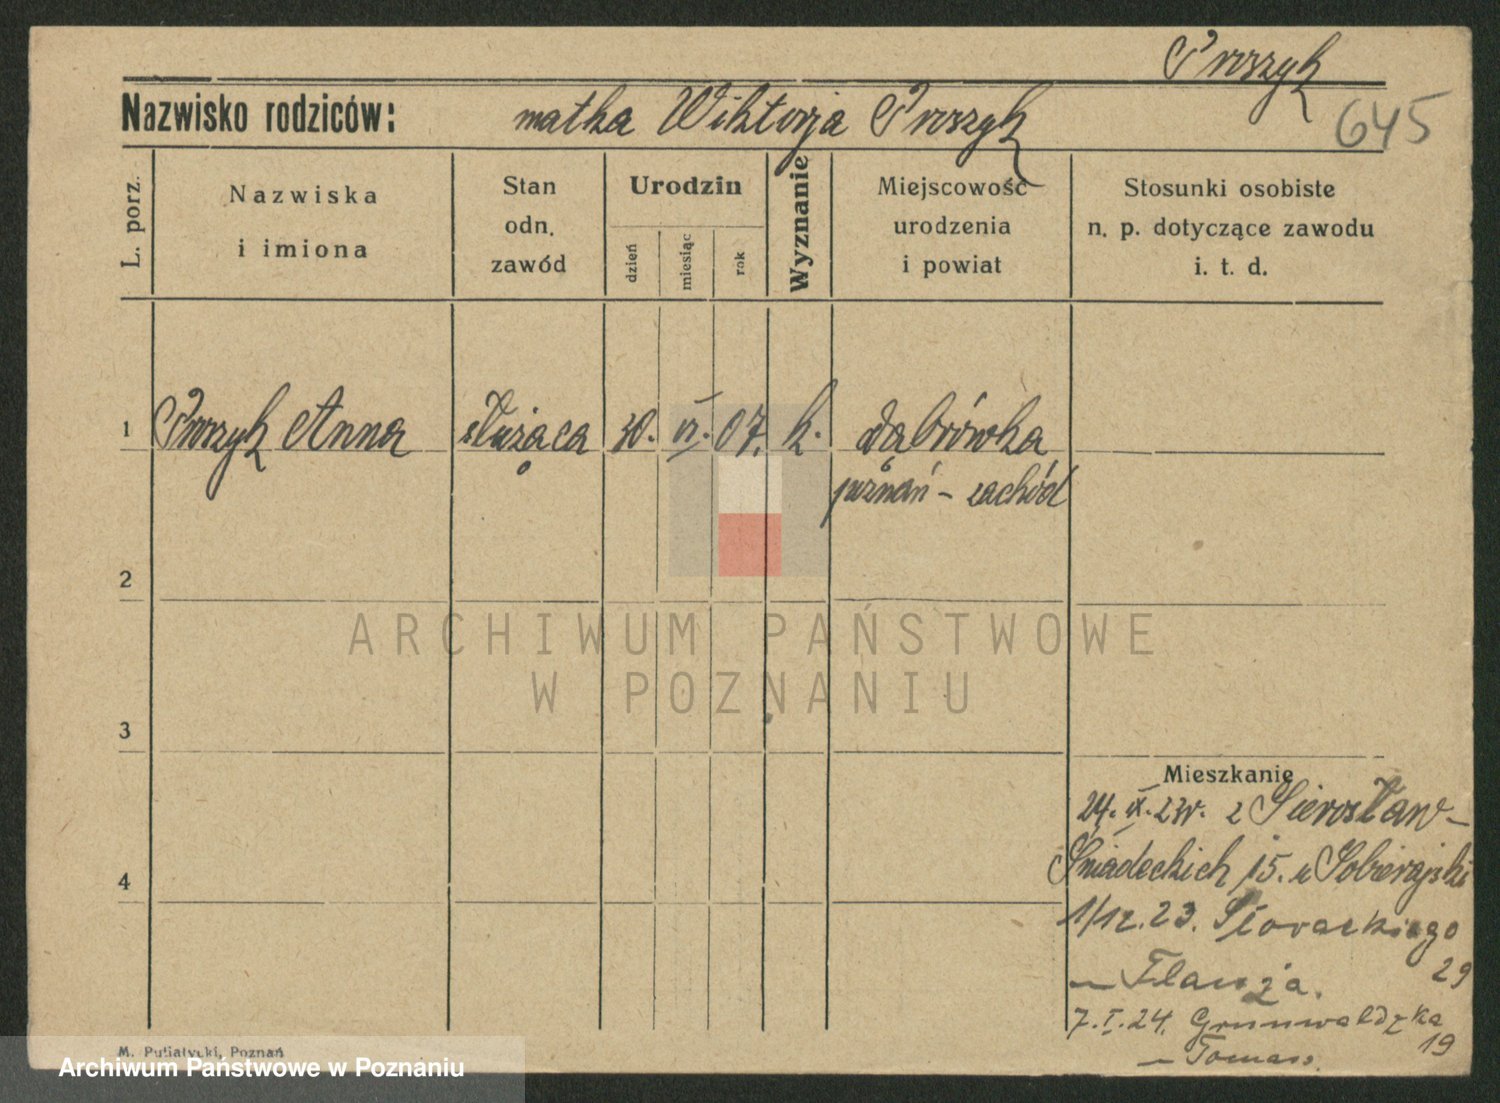 Proszyk
Nazwisko rodziców: matka Wiktorja Proszyk
645
L. porz.
Nazwiska
i imiona
Stan
odn.
zawód
Urodzin
dzień
miesiąc
rok
Wyznanie
Miejscowość
urodzenia
i powiat
Stosunki osobiste
n. p. dotyczące zawodu
i. t. d.
1 Proszyk Anna służąca 30. VI. 07. k. Dąbrówka
poznań - zachód
2
ARCHIWUM PAŃSTWOWE
W POZNANIU
3
Mieszkanie
24. IX. 23r. z Sierosław -
4
Śniadeckich 15. u Sobierajski
1/12.23. Słowackiego
29
7.I.24. Grunwaldzka
19
M. Putiatycki, Poznań
Archiwum Państwowe w Poznaniu